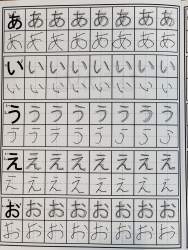 あ あ あ あ あ あ あ あ
あ あ あ あ あ あ あ あ
い い い い い い い い
い い い い い い い い
う う う う う う う う
う う う う う う う う
え え え え え え え え
え え え え え え え え
お お お お お お お お
お お お お お お お お